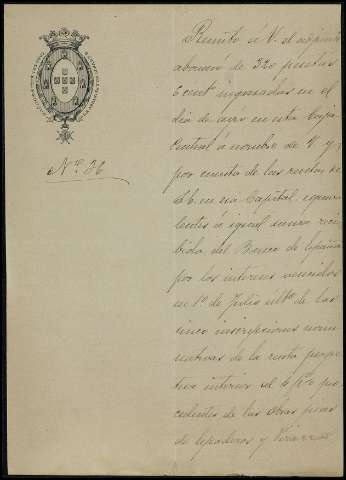 Nº 36
Remito á V. el adjunto
abonaré de 320 pesetas
ingresadas en el
dia de ayer en esta Caja
Central á nombre de V. y
por cuenta de las rentas de
en esa Capital, equiva
lentes á igual suma reci
bida del Banco de España
por los intereses vencidos
en 1º de Julio últº de las
cinco inscripciones nomi
nativas de la renta perpe
tua interior al 4 pº pro
cedentes de las obras pias
de